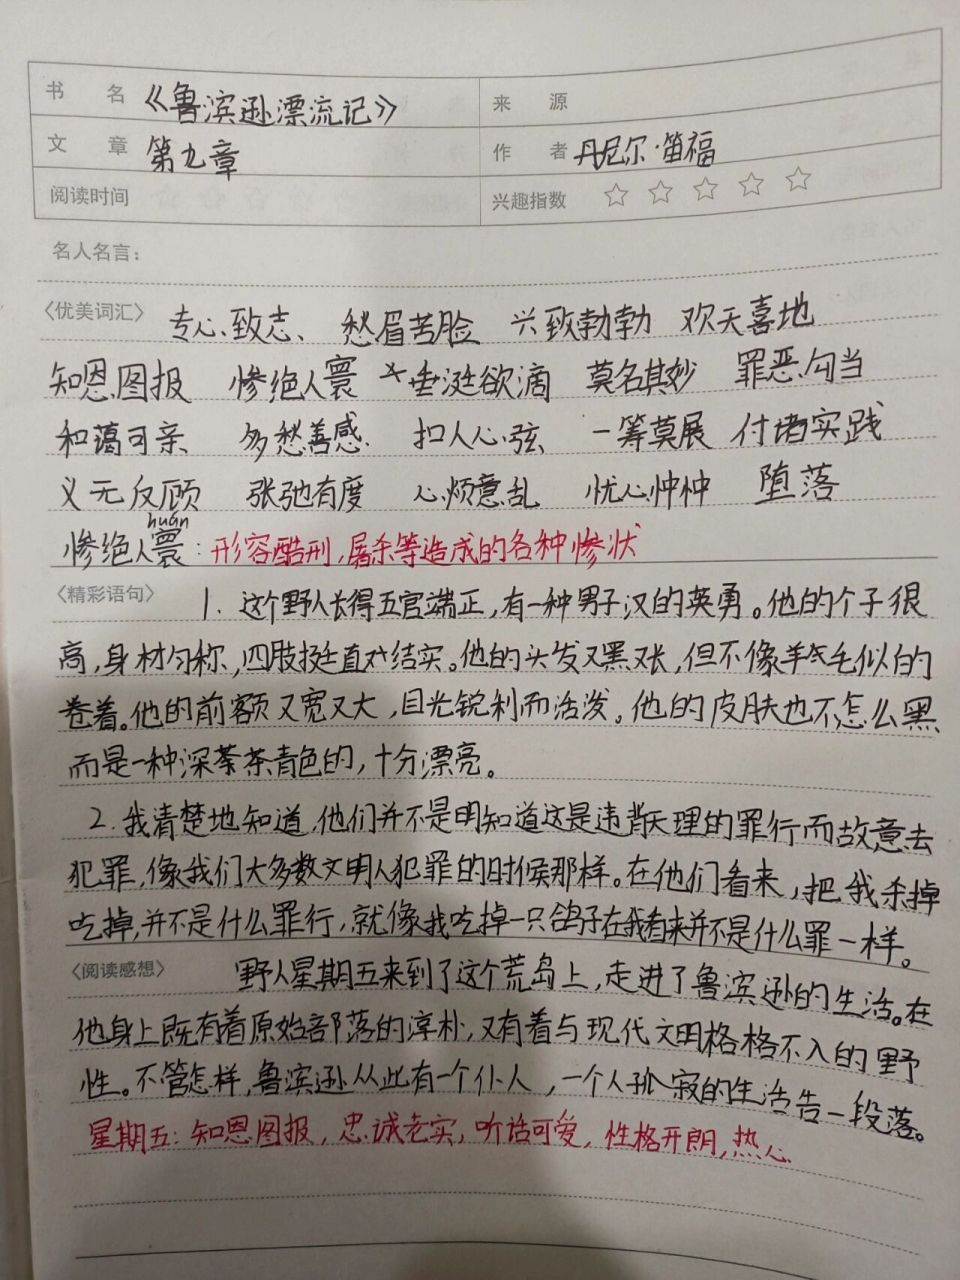 书 名 《鲁滨逊漂流记》 来 源
文 章 第九章 作 者 丹尼尔·笛福
阅读时间 兴趣指数 ☆ ☆ ☆ ☆ ☆
名人名言：
〈优美词汇〉 专心致志、 愁眉苦脸 兴致勃勃 欢天喜地
知恩图报 惨绝人寰 垂涎欲滴 莫名其妙 罪恶勾当
和蔼可亲 多愁善感 扣人心弦 一筹莫展 付诸实践
义无反顾 张弛有度 心烦意乱 忧心忡忡 堕落
huán
惨绝人寰：形容酷刑，屠杀等造成的各种惨状
〈精彩语句〉 1. 这个野人长得五官端正，有一种男子汉的英勇。他的个子很
高，身材匀称，四肢挺直又结实。他的头发又黑又长，但不像羊毛似的
卷着。他的前额又宽又大，目光锐利而活泼。他的皮肤也不怎么黑
而是一种深茶青色的，十分漂亮。
2. 我清楚地知道，他们并不是明知道这是违背天理的罪行而故意去
犯罪，像我们大多数文明人犯罪的时候那样。在他们看来，把我杀掉
吃掉，并不是什么罪行，就像我吃掉一只鸽子在我看来并不是什么罪一样。
〈阅读感想〉 野人星期五来到了这个荒岛上，走进了鲁滨逊的生活。在
他身上既有着原始部落的淳朴，又有着与现代文明格格不入的野
性。不管怎样，鲁滨逊从此有一个仆人，一个人孤寂的生活告一段落。
星期五：知恩图报，忠诚老实，听话可爱，性格开朗，热心